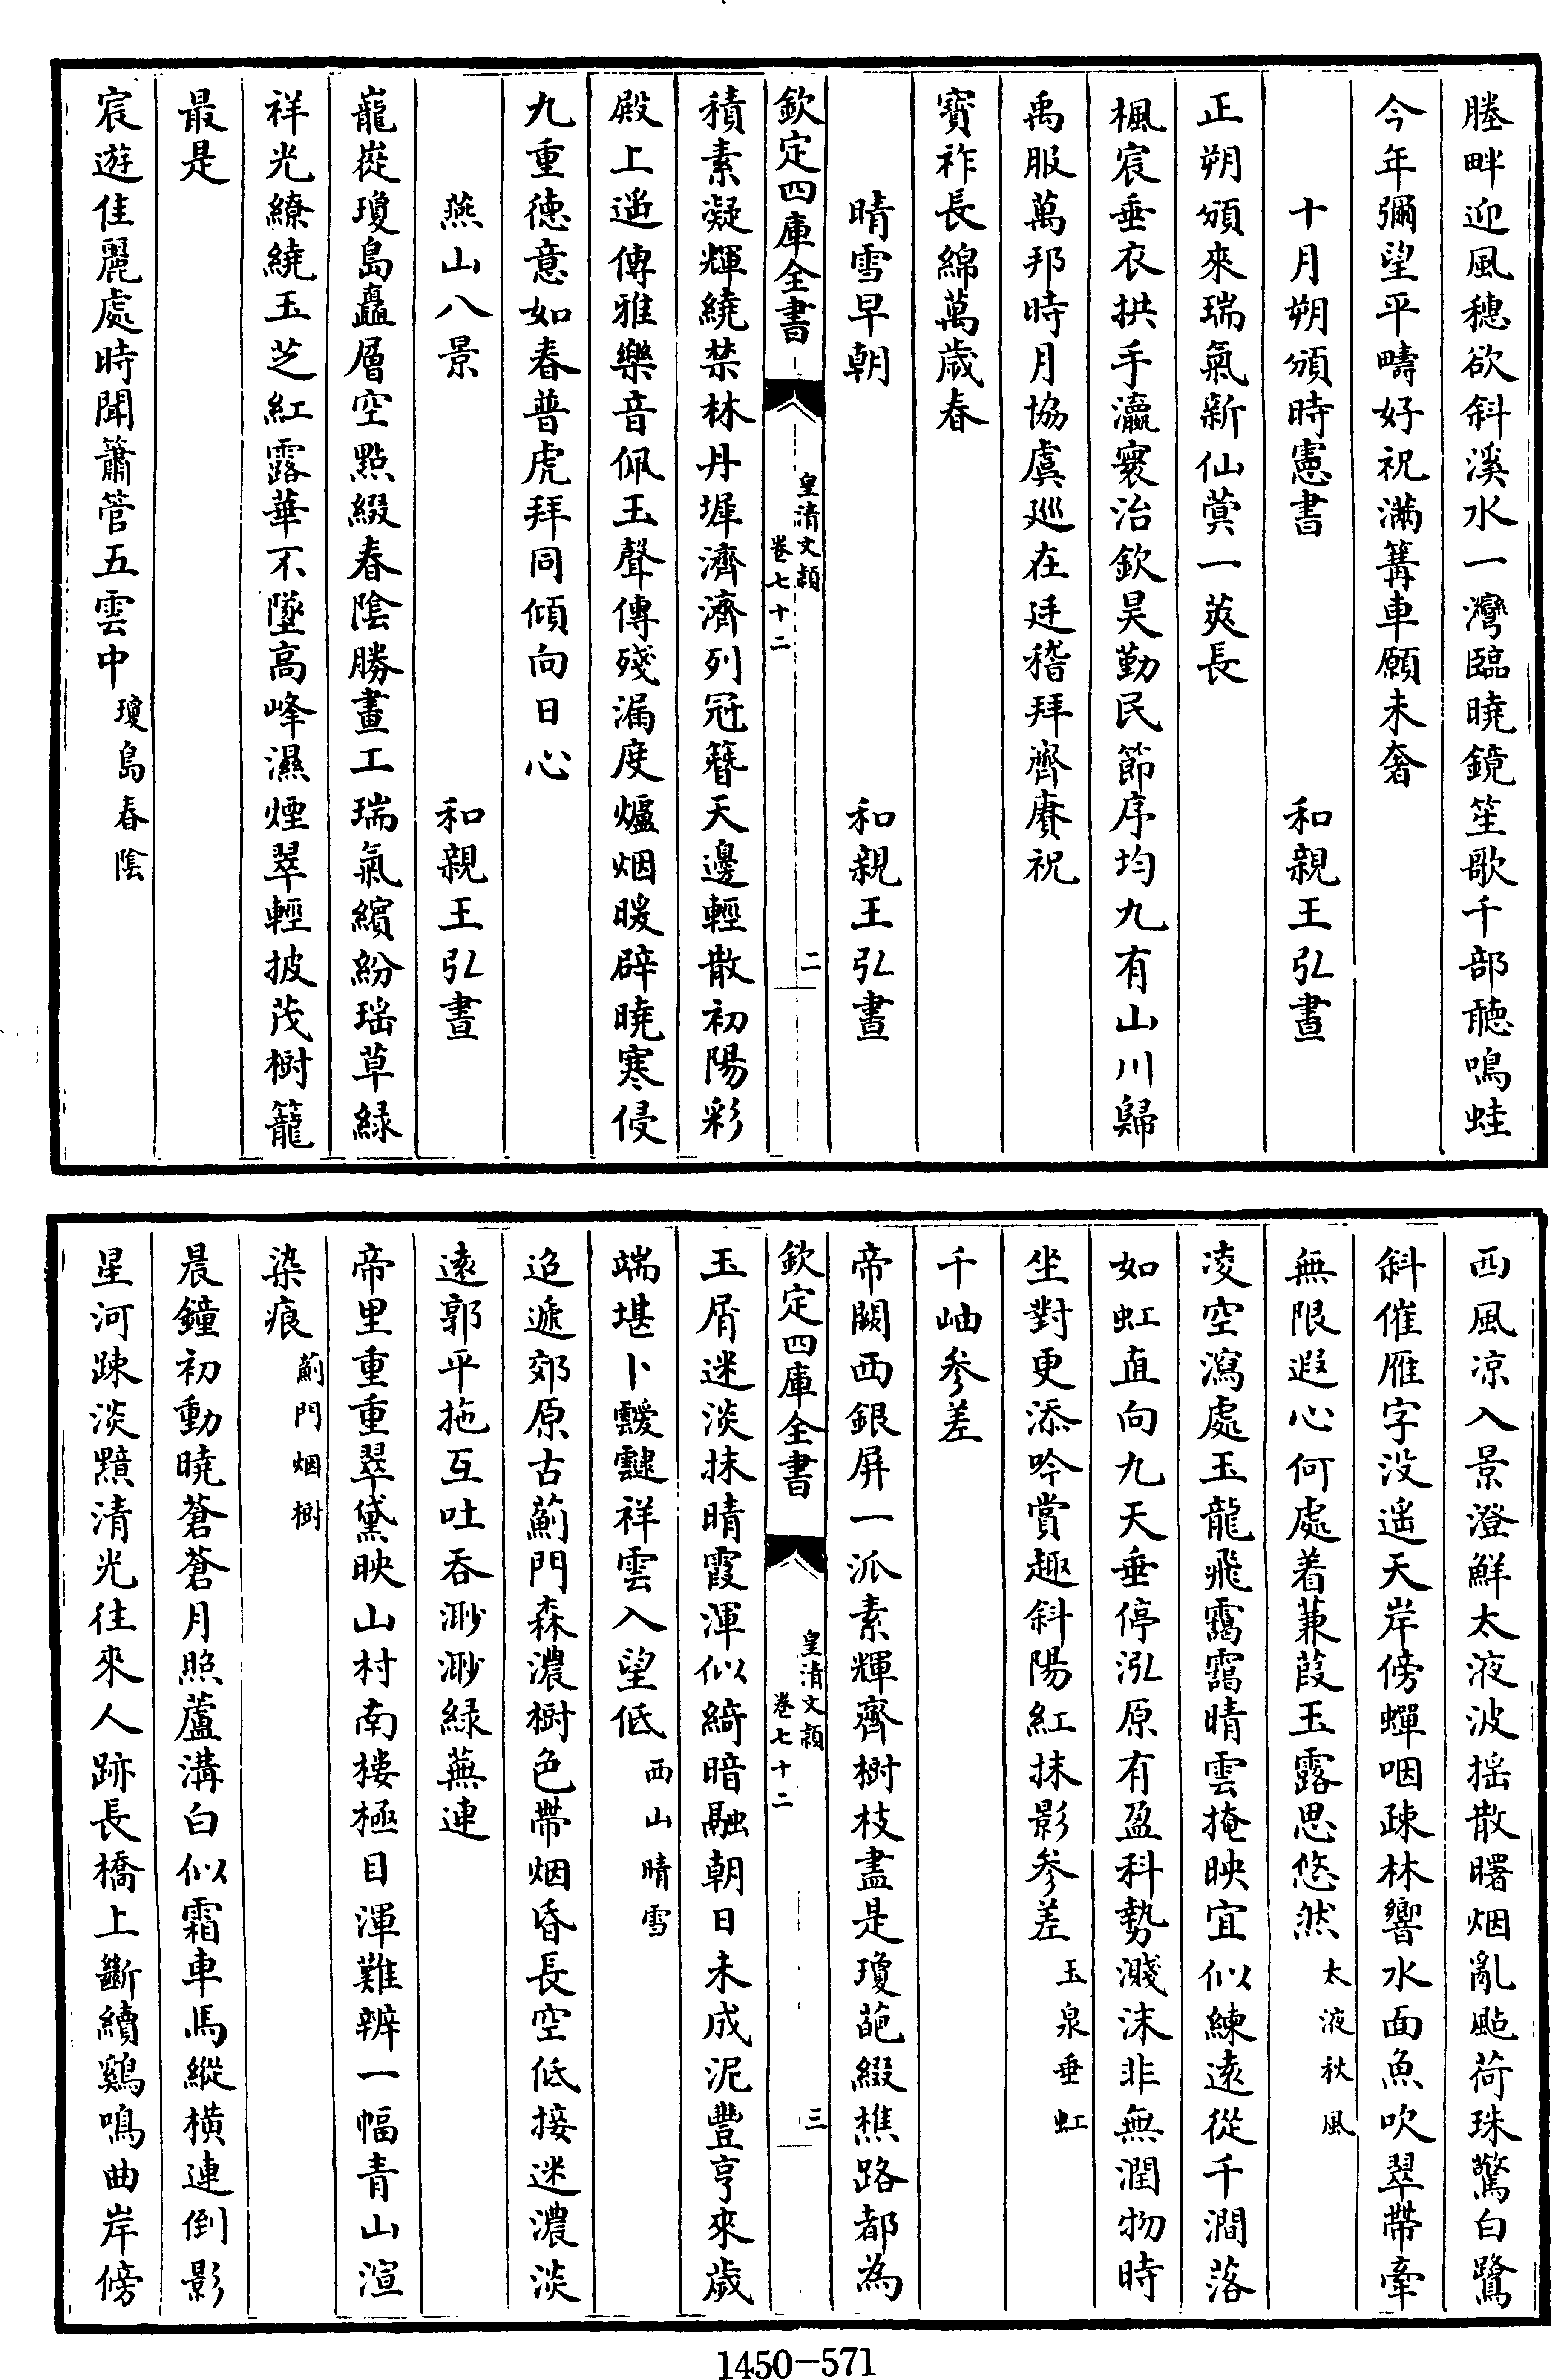 塍畔迎風穗欲斜溪水一灣臨曉鏡笙歌千部聽鳴蛙
今年彌望平疇好祝滿篝車願未奢
十月朔頒時憲書 和親王弘晝
正朔頒來瑞氣新仙蓂一莢長
楓宸垂衣拱手瀛寰治欽昊勤民節序均九有山川歸
禹服萬邦時月協虞廵在廷稽拜齊賡祝
寳祚長綿萬歲春
晴雪早朝 和親王弘晝
欽定四庫全書 皇清文穎 卷七十二 二
積素凝輝繞禁林丹墀濟濟列冠簪天邊輕散初陽彩
殿上遥傳雅樂音佩玉聲傳殘漏度爐烟暖辟曉寒侵
九重德意如春普虎拜同傾向日心
燕山八景 和親王弘晝
巃嵸瓊島矗層空點綴春陰勝畫工瑞氣繽紛瑶草綠
祥光繚繞玉芝紅露華不墜高峰濕煙翠輕披茂樹籠
最是
宸遊佳麗處時聞簫管五雲中 瓊島春陰
西風凉入景澄鮮太液波揺散曙烟亂颭荷珠驚白鷺
斜催雁字没遥天岸傍蟬咽疎林響水面魚吹翠帶牽
無限遐心何處着蒹葭玉露思悠然 太液秋風
凌空瀉處玉龍飛靄靄晴雲掩映宜似練遠從千澗落
如虹直向九天垂停泓原有盈科勢濺沫非無潤物時
坐對更添吟賞趣斜陽紅抹影參差 玉泉垂虹
千岫參差
帝闕西銀屏一派素輝齊樹枝盡是瓊葩綴樵路都為
欽定四庫全書 皇清文穎 卷七十二 三
玉屑迷淡抹晴霞渾似綺暗融朝日未成泥豐亨來歲
端堪卜靉靆祥雲入望低 西山晴雪
迢遞郊原古薊門森濃樹色帶烟昏長空低接迷濃淡
遠郭平拖互吐吞渺渺緑蕪連
帝里重重翠黛映山村南樓極目渾難辨一幅青山渲
染痕 薊門烟樹
晨鐘初動曉蒼蒼月照蘆溝白似霜車馬縱橫連倒影
星河踈淡黯清光往來人跡長橋上斷續鷄鳴曲岸傍
1450—571